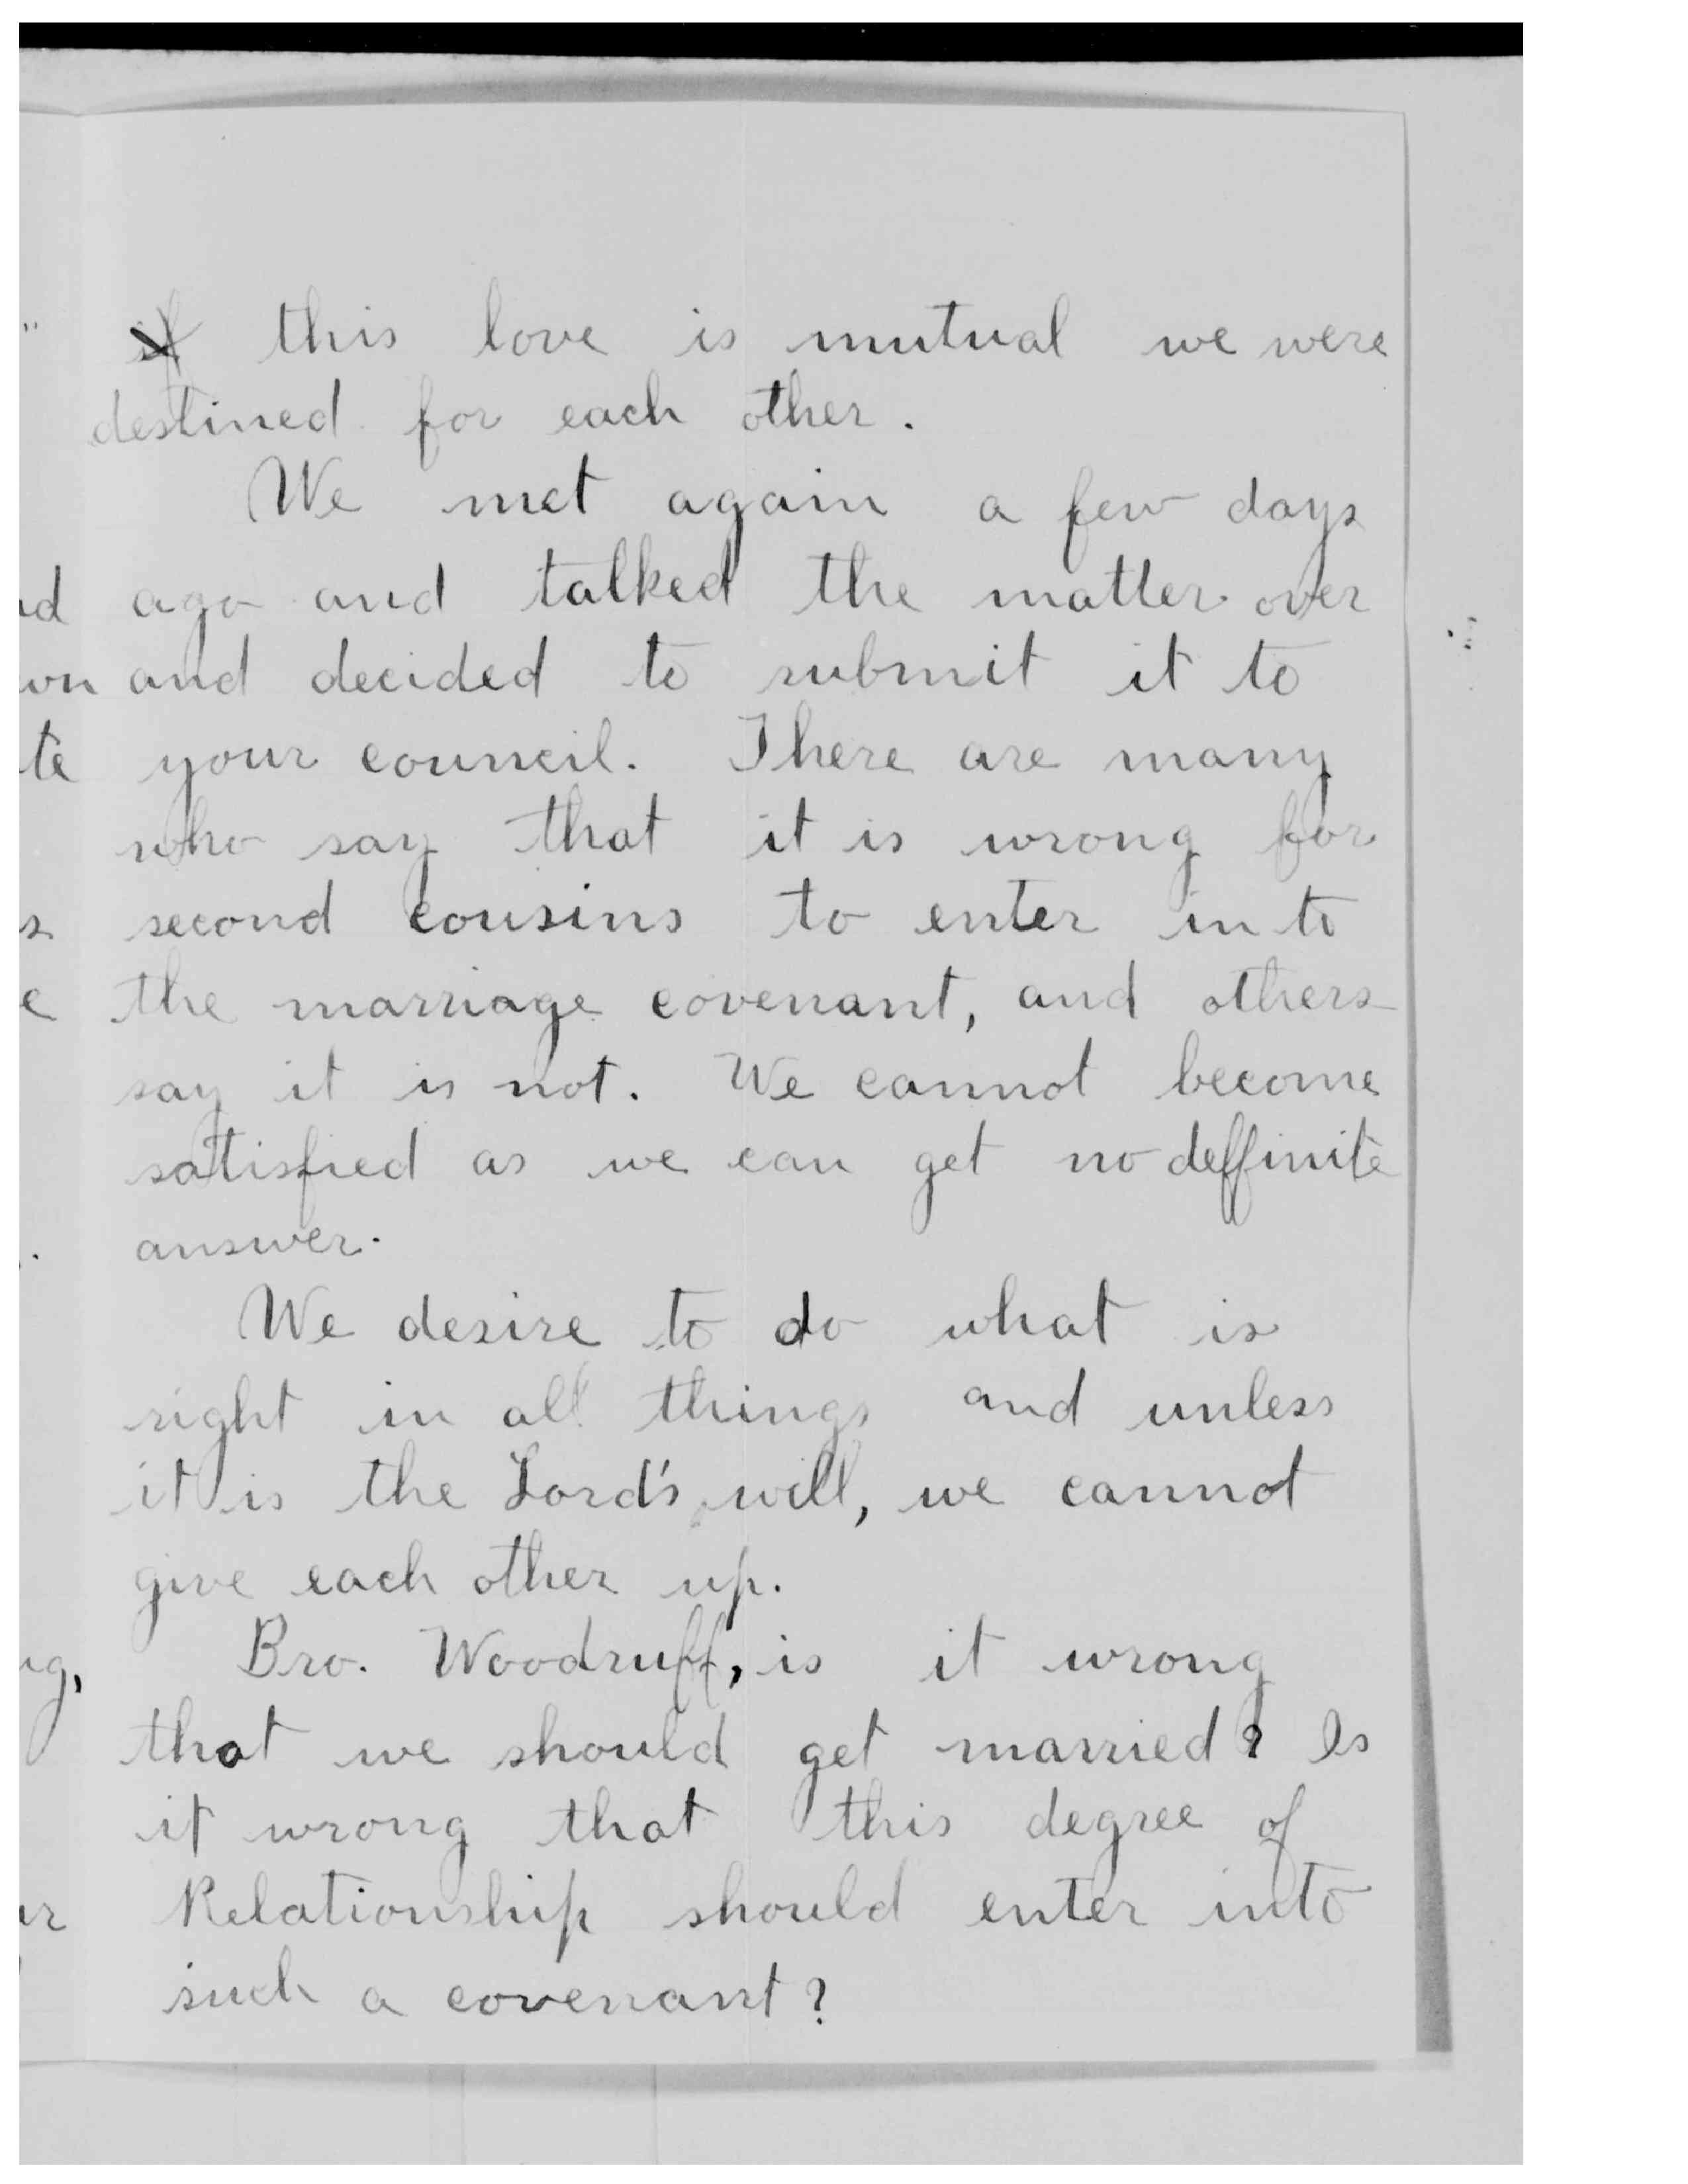 if this love is mutual we were
destined for each other.
We met again a few days
ago and talked the matter over
and decided to submit it to
your council. There are many
who say that it is wrong for
second cousins to enter in to
the marriage covenant, and others
say it is not. We cannot become
satisfied as we can get no deffinite
answer.
We desire to do what is
right in all things and unless
it is the Lord's will, we cannot
give each other up.
Bro. Woodruff, is it wrong
that we should get married? Is
it wrong that this degree of
Relationship should enter into
such a covenant?